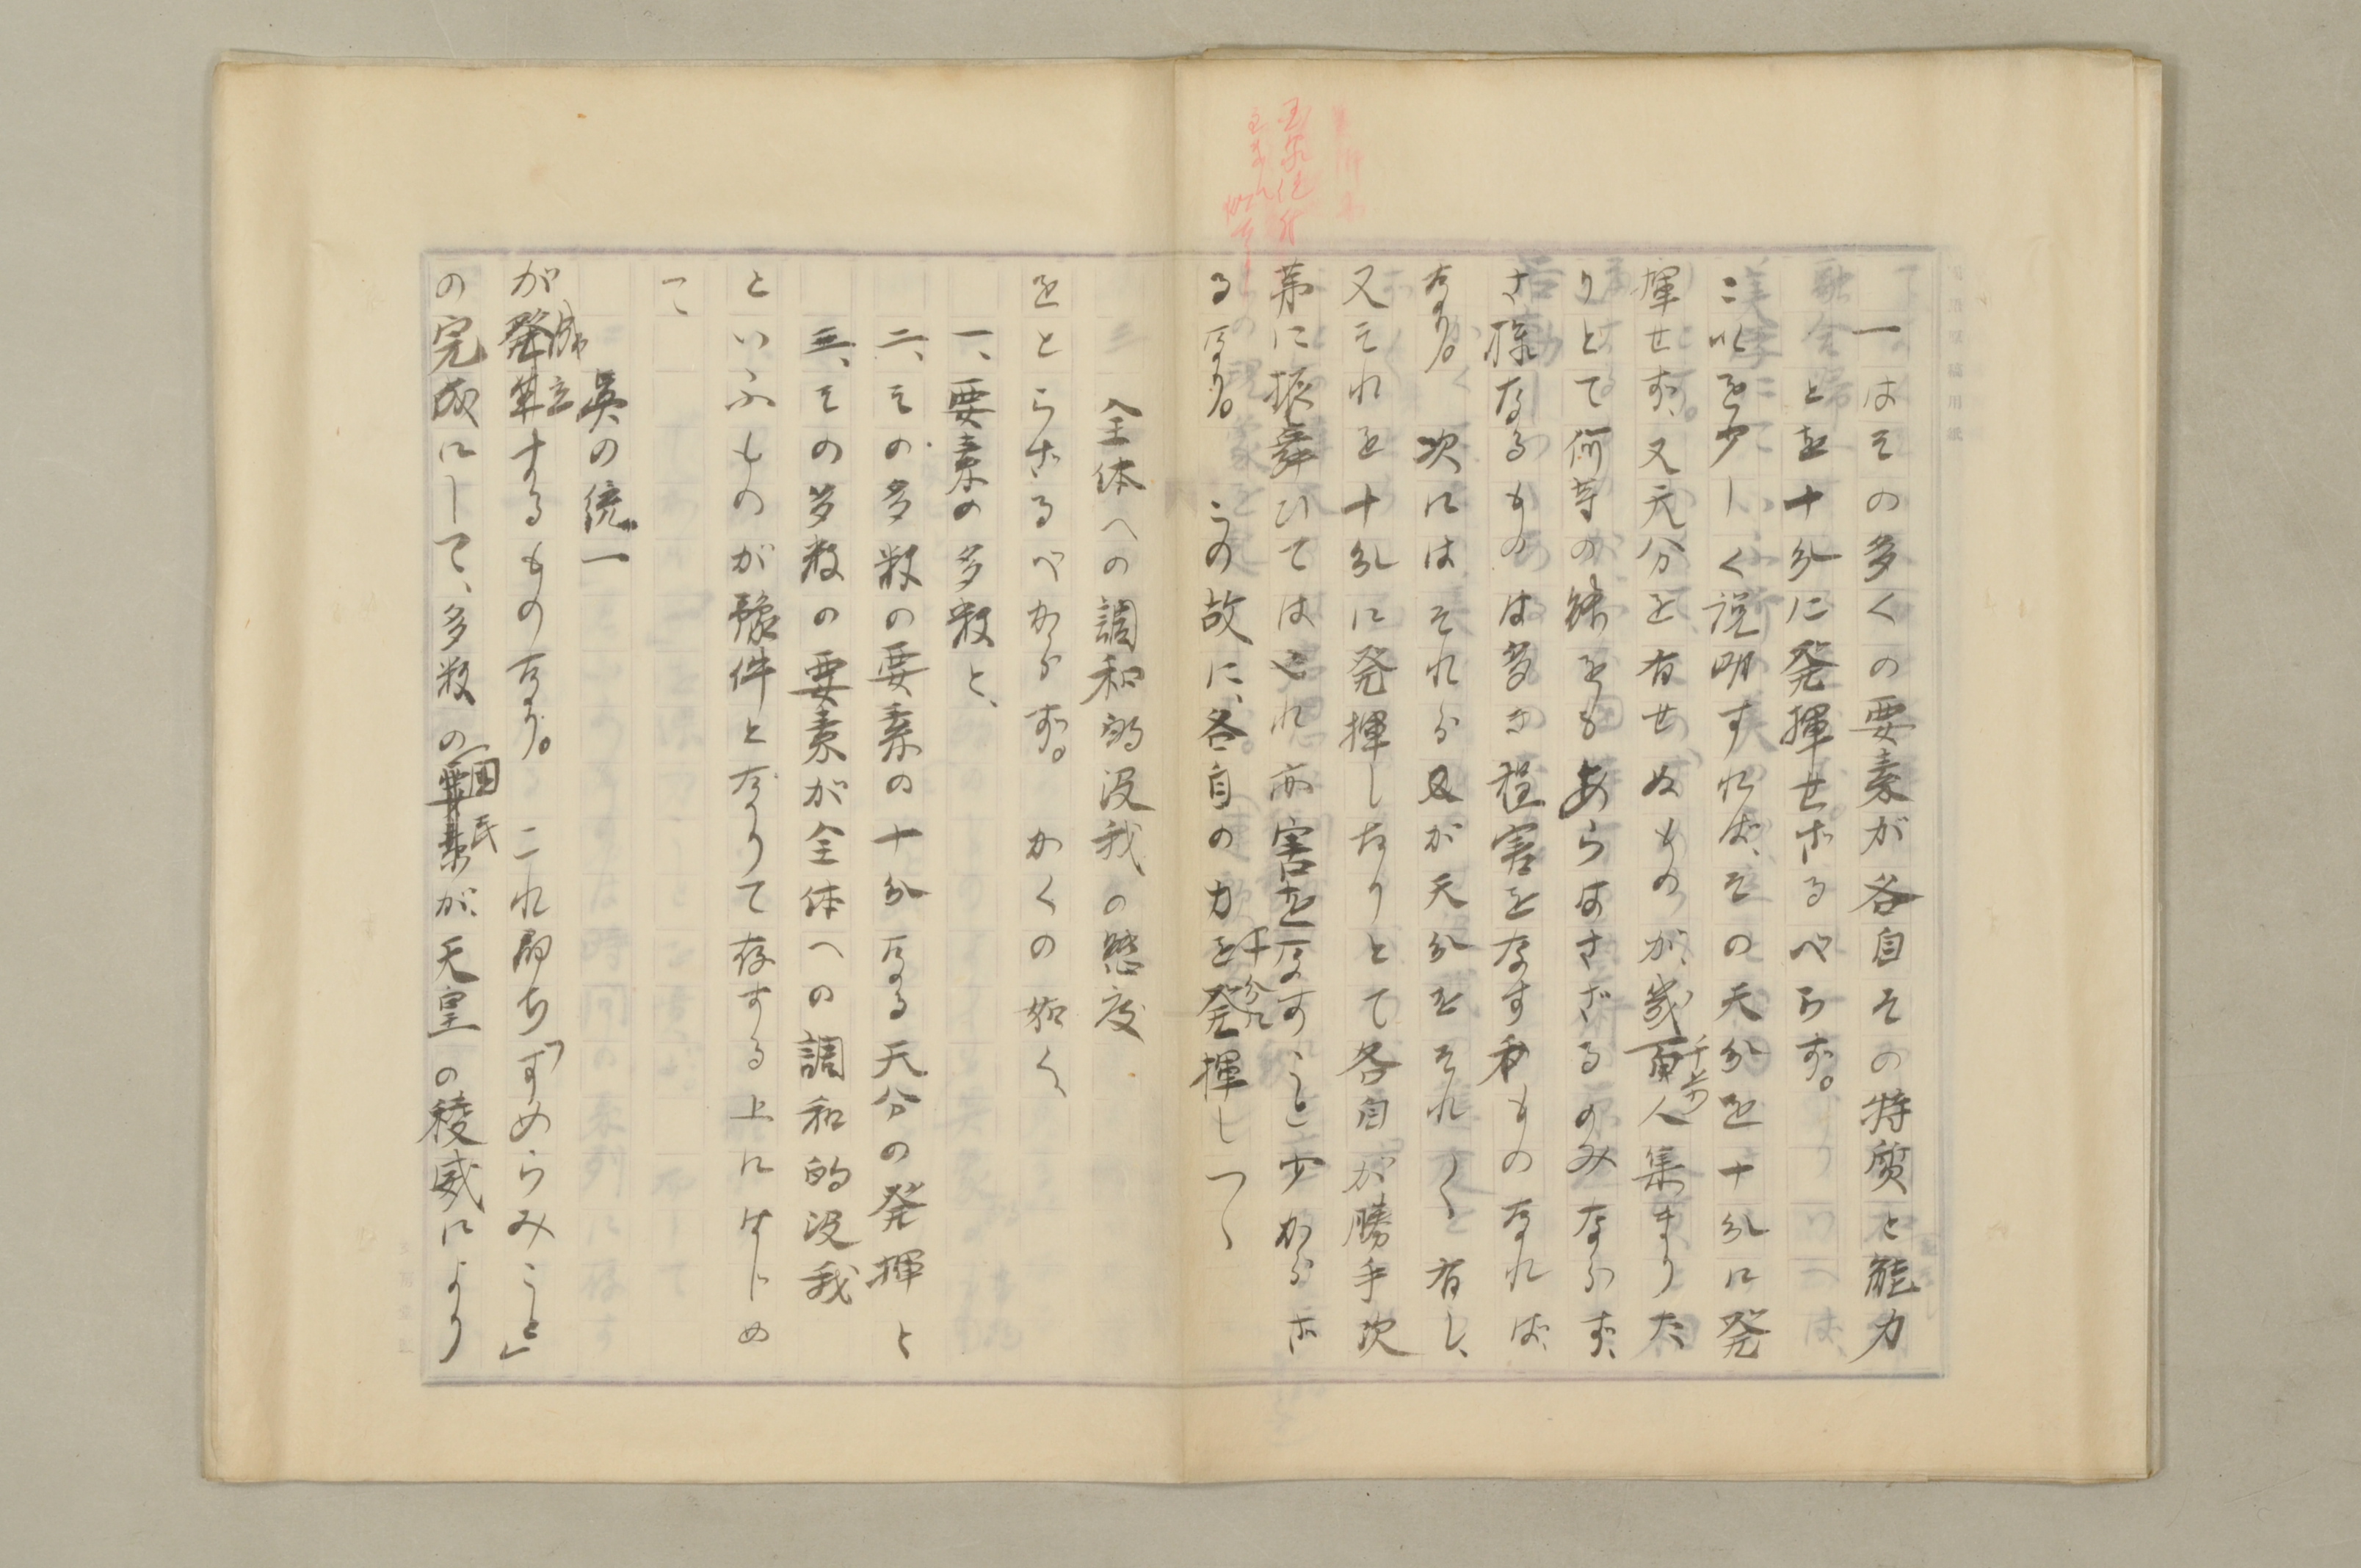 一はその多くの要素が各自その特質と能力
とを十分に発揮せざるべらず。
これを少しく説明すれば、その天分を十分に発
揮せず、又天分を有せぬものが、幾百千万人集まりた
りとて何等の績をもあらはさざるのみならず、
さ様なるものは多き程害をなすものなれば、
なり。次にはそれら又が天分をそれ〱有し、
又それを十分に発揮しなりとて各自が勝手次
第に振舞ひてはやれ亦害をなすこと少からざ
るなり。この故に、各自の力を十分に発揮しつゝ
全体への調和的没我の態度
をとらざるべからず。かくの如く、
一、要素の多数と、
二、その多数の要素の十分なる天分の発揮と
三、その多数の要素が全体への調和的没我
といふものが豫件となりて存する上にはじめ
て
真の統一
が発生成立するものなり。これ即ち「すめらみこと」
の完成にして、多数の要素国民が、天皇の稜威により